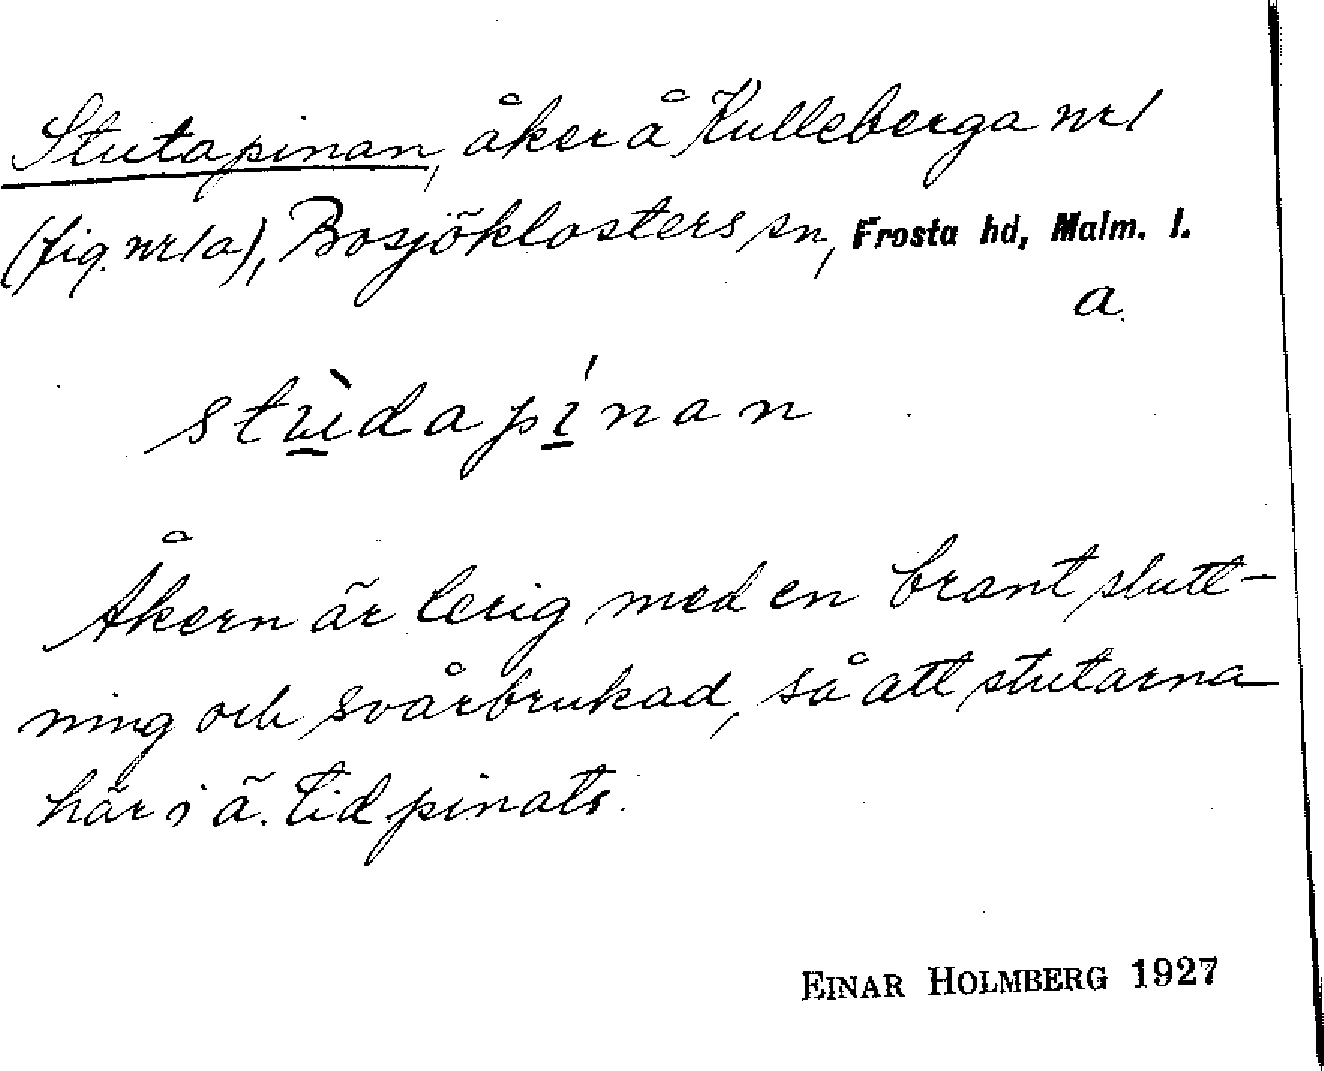 Stutapinan, åker å Kulleberga nr 1
(fig. nr 1a), Bosjöklosters sn, Frosta hd, Malm. l.
a.
stù̲dapí̲nan
Åkern är lerig med en brant slutt-
ning och svårbrukad, så att stutarna
här i ä. tid pinats.
EINAR HOLMBERG 1927